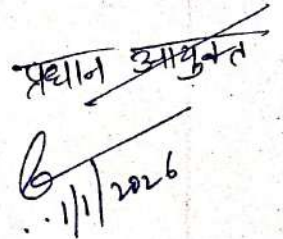 प्रधान आयुक्त
1/1/2026